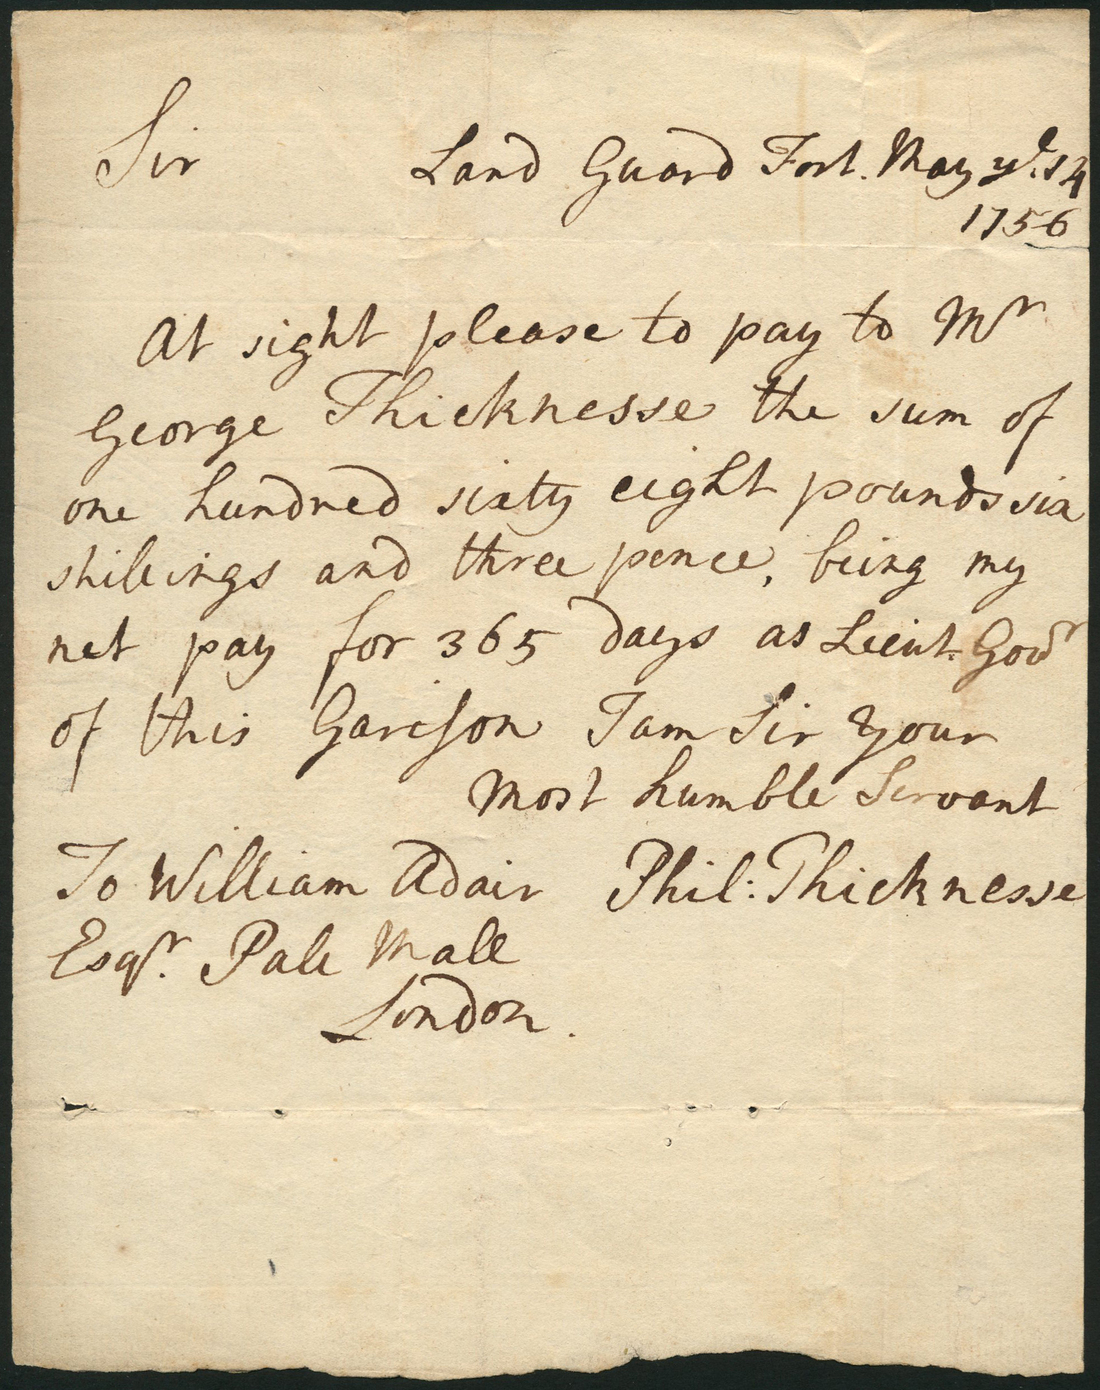 Sir Land Guard Fort. May ye. 14
1756
At sight please to pay to Mr
George Thicknesse the sum of
one hundred sixty eight pounds six
shillings and three pence, being my
net pay for 365 days as Lieut. Govr
of this Garison I am Sir Your
most humble Servant
To William Adair Phil: Thicknesse
Esqr. Pale Mall
London.